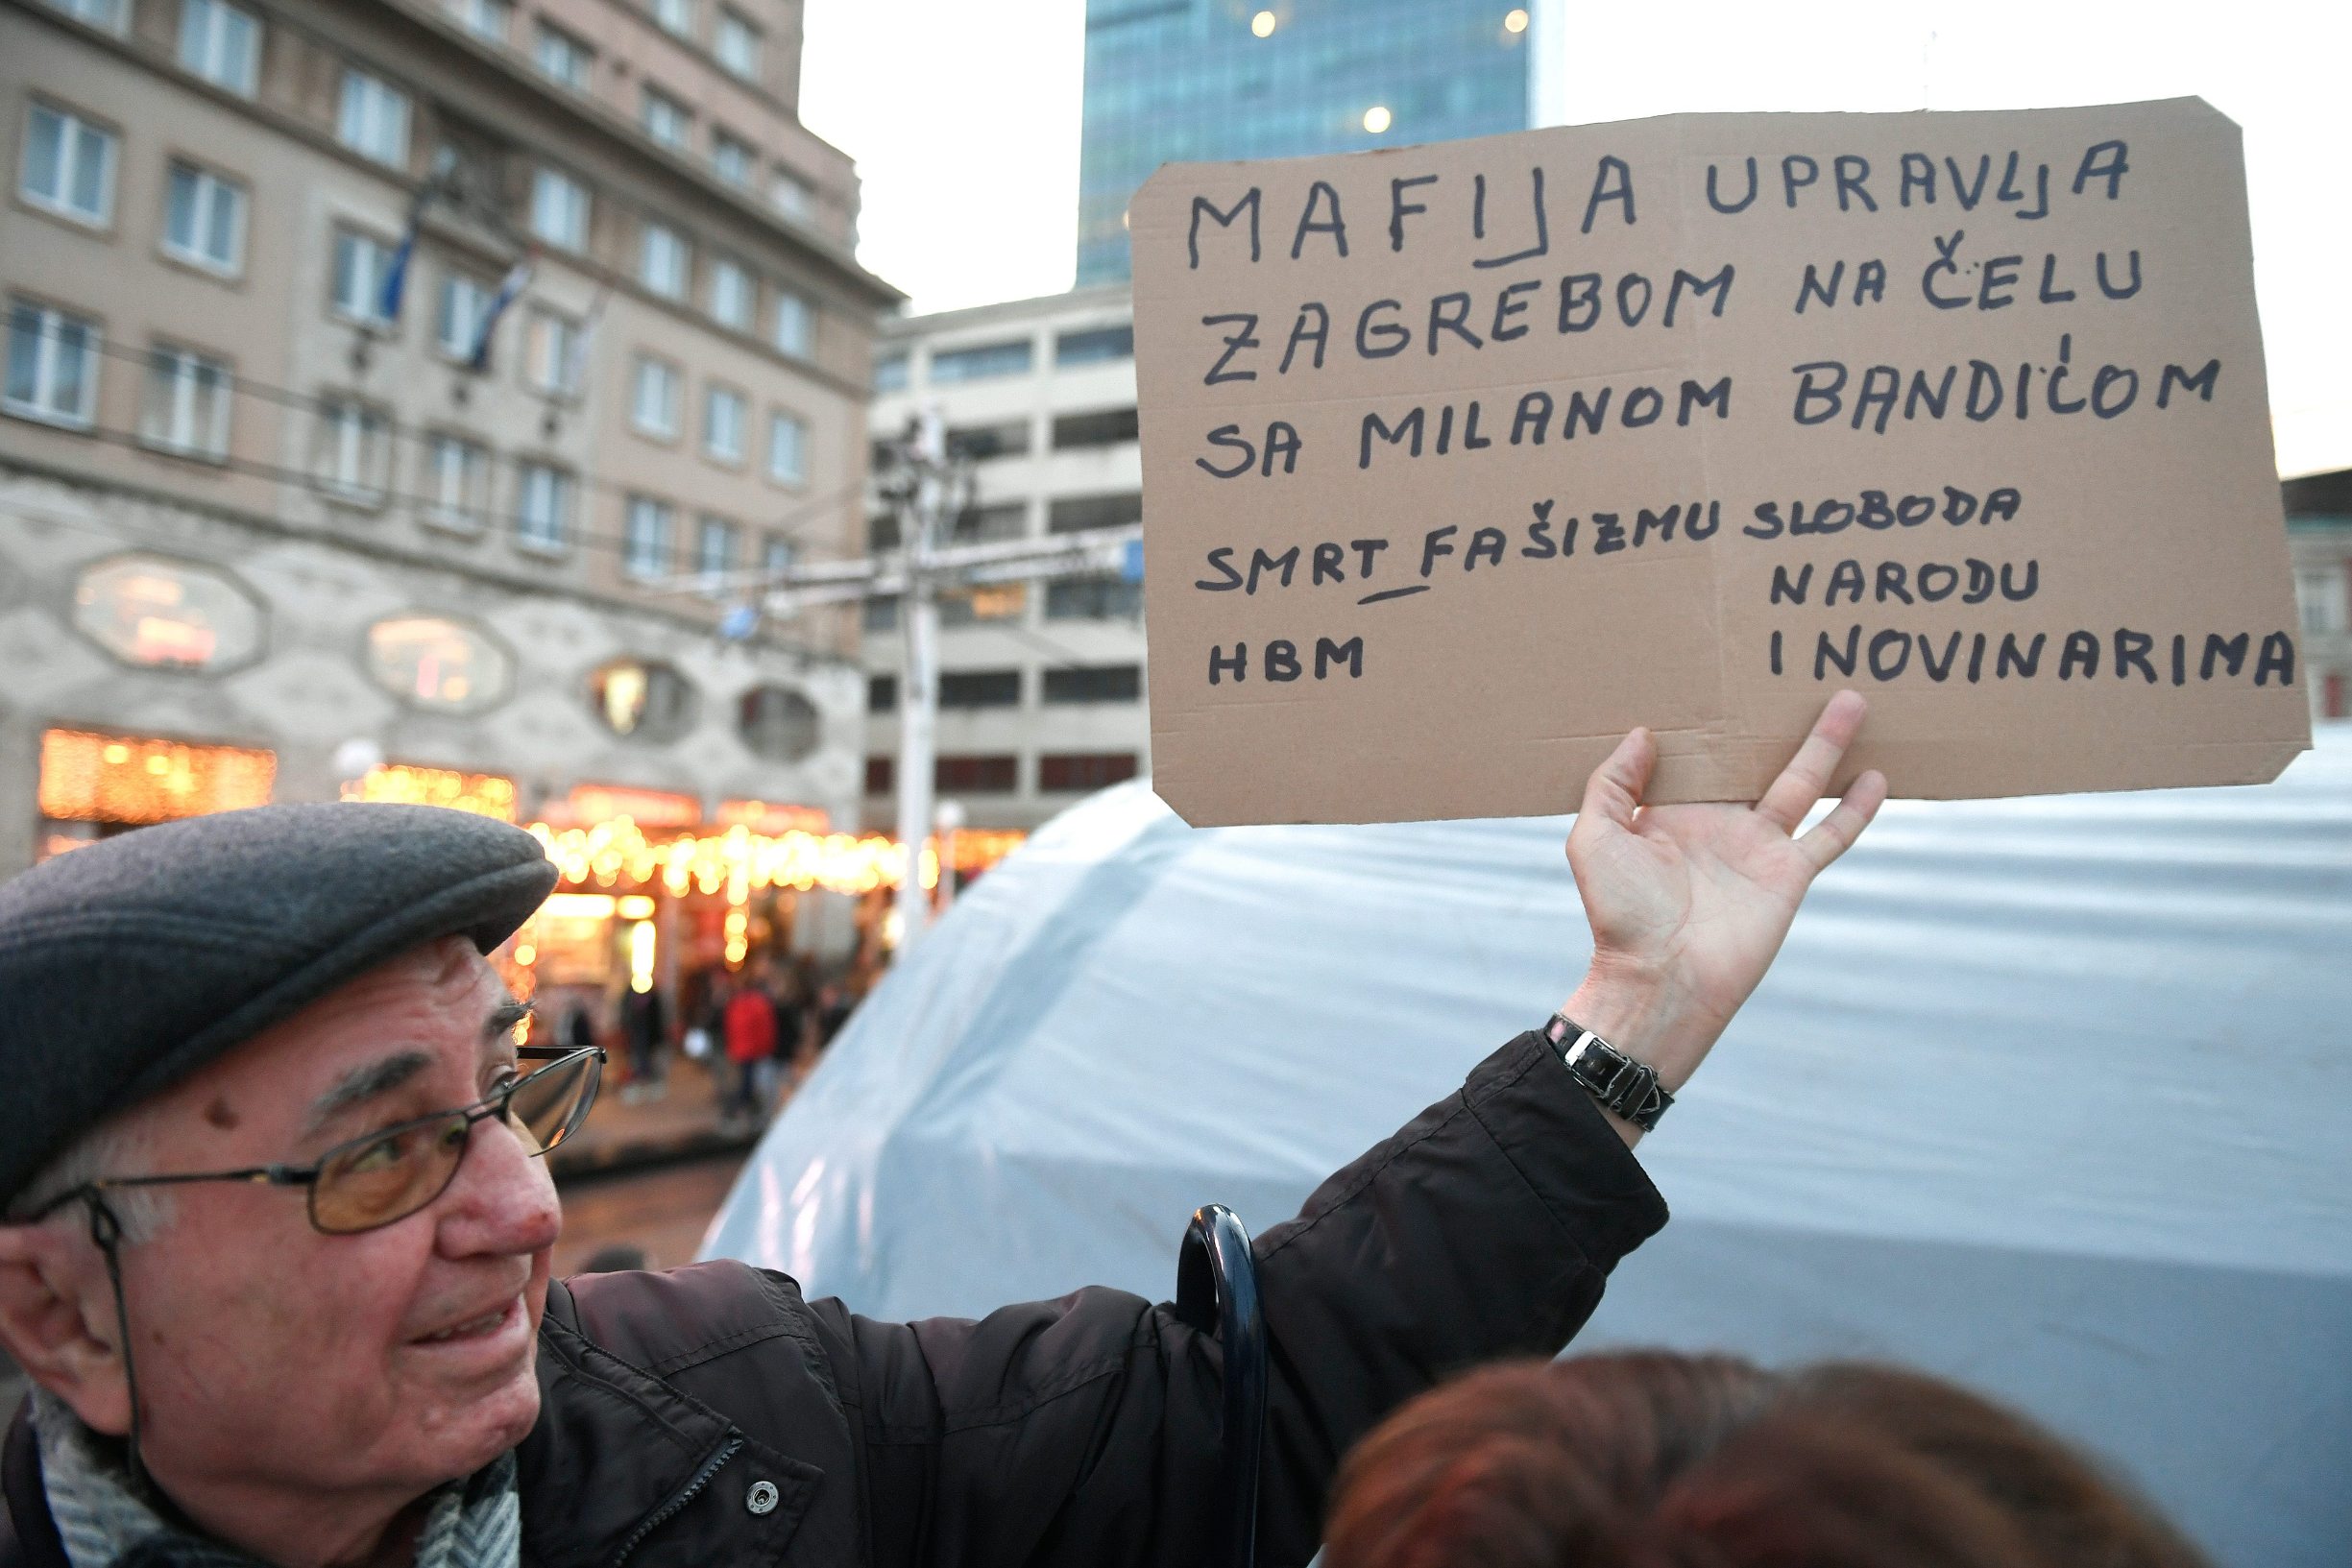 MAFIJA UPRAVLJA
ZAGREBOM NA ČELU
SA MILANOM BANDIĆOM
SMRT FAŠIZMU SLOBODA
NARODU
HBM I NOVINARIMA